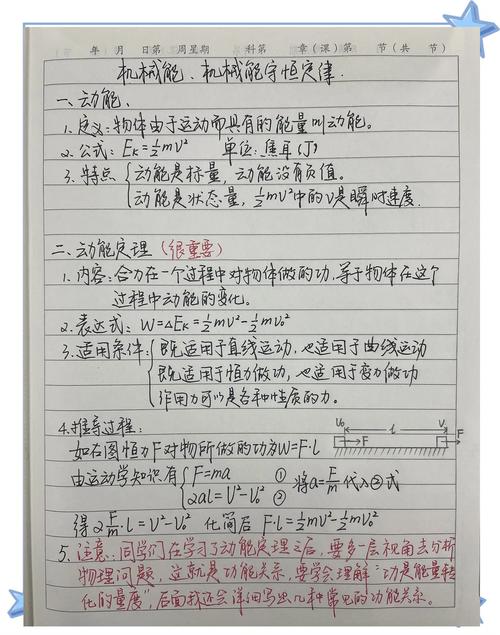 年 月 日第 周星期 科第 章(课)第 节(共 节)
机械能、机械能守恒定律.
一、动能、
1. 定义:物体由于运动而具有的能量叫动能。
2. 公式: Eₖ=½mv² 单位:焦耳(J)
3. 特点 { 动能是标量,动能没有负值。
动能是状态量,½mv²中的v是瞬时速度.
二、动能定理(很重要)
1. 内容:合力在一个过程中对物体做的功,等于物体在这个
过程中动能的变化。
2. 表达式: W=ΔEₖ=½mv²-½mv₀²
3. 适用条件: { 既适用于直线运动,也适用于曲线运动
既适用于恒力做功,也适用于变力做功
作用力可以是各种性质的力。
4. 推导过程:
V₀ l V
F F
如右图恒力F对物所做的功为W=F·l
由运动学知识有 { F=ma ①
2al=V²-V₀² ②
将a=F/m代入②式
得2F/m·l=V²-V₀² 化简后 F·l=½mv²-½mv₀²
5. 注意:同学们在学习了动能定理之后,要多层视角去分析
物理问题,这就是功能关系,要学会理解“功是能量转
化的量度”,后面我还会详细写出几种常见的功能关系。